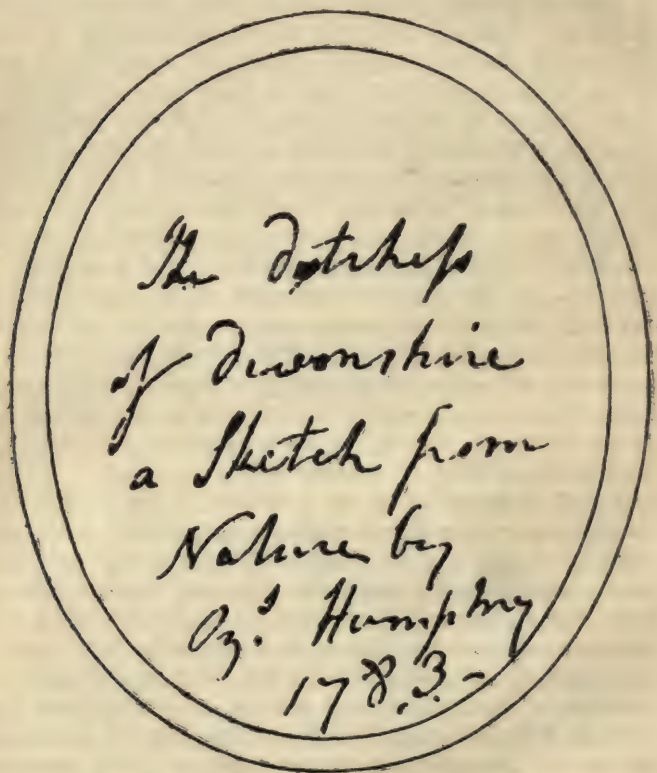 The Dutcheſs
of Devonshire
a Sketch from
Nature by
Oz.ˢ Humphry
1783.-